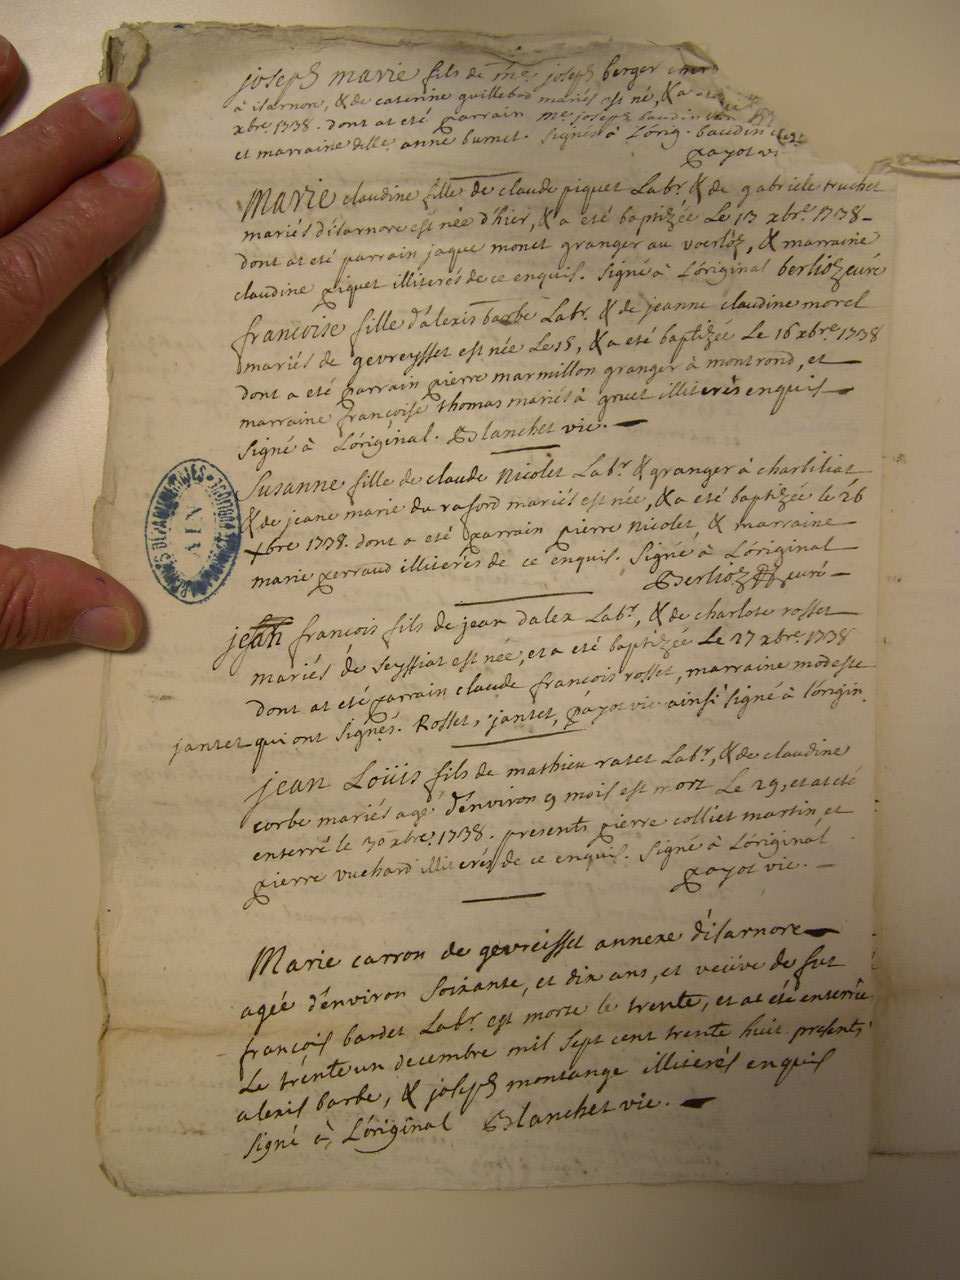 joseph marie fils de me joseph berger
à isarnore, & de caterine guillebod mariés est né, & a
xbre 1738. dont at eté parrain me joseph baudin
et marraine delle anne burnet. signés à L'orig. baudin
payot vi
Marie claudine fille de claude piquet Labr. & de gabriele truchet
mariés d'isarnore est née d'hier, & a eté baptizée Le 13 xbre. 1738 –
dont at eté parrain jaque monet granger au voerloz, & marraine
claudine piquet illiterés de ce enquis. Signé à L'original berlioz curé
francoise fille d'alexis barbe Labr. & de jeanne claudine morel
mariés de gevreysset est née Le 15, & a eté baptizée Le 16 xbre. 1738
dont a eté parrain pierre marmillon granger à montrond, et
marraine françoise thomas mariés à gruet illiterés enquis —
Signé à L'original. Blanchet vic. —
Susanne fille de claude Nicolet Labr. & granger à charbiliat
& de jeane marie du raford mariés est née, & a eté baptizée le 26
xbre 1738. dont a eté parrain pierre nicolet & marraine —
marie perraud illiterés de ce enquis. Signé à L'original —
Berlioz curé –
jean francois fils de jean dalex Labr, & de charlote rosset
mariés de Seyssiat est née, et a eté baptizée Le 27 xbre. 1738
dont at eté parrain claude françois rosset, marraine modeste
jantet qui ont signés. Rosset, jantet, payot vic ainsi signé à l'origin.
jean Loüis fils de mathieu ratet Labr, & de claudine
corbe mariés agé d'environ 9 mois est mort Le 29, et at eté
enterré le 30 xbre. 1738. presents pierre colliet martin, et
pierre vuchard illiterés de ce enquis. Signé à L'original
payot vic. –
Marie carron de gevreisset annexe d'isarnore —
agée d'environ Soixante, et dix ans, et veüve de fut
françois bardet Labr. est morte le trente, et at eté enterrée
Le trente un decembre mil sept cent trente huit presents
alexis barbe, & joseph montange illiterés enquis
signé à L'original Blanchet vic. —
ARCHIVES DÉPARTEMENTALES
AIN